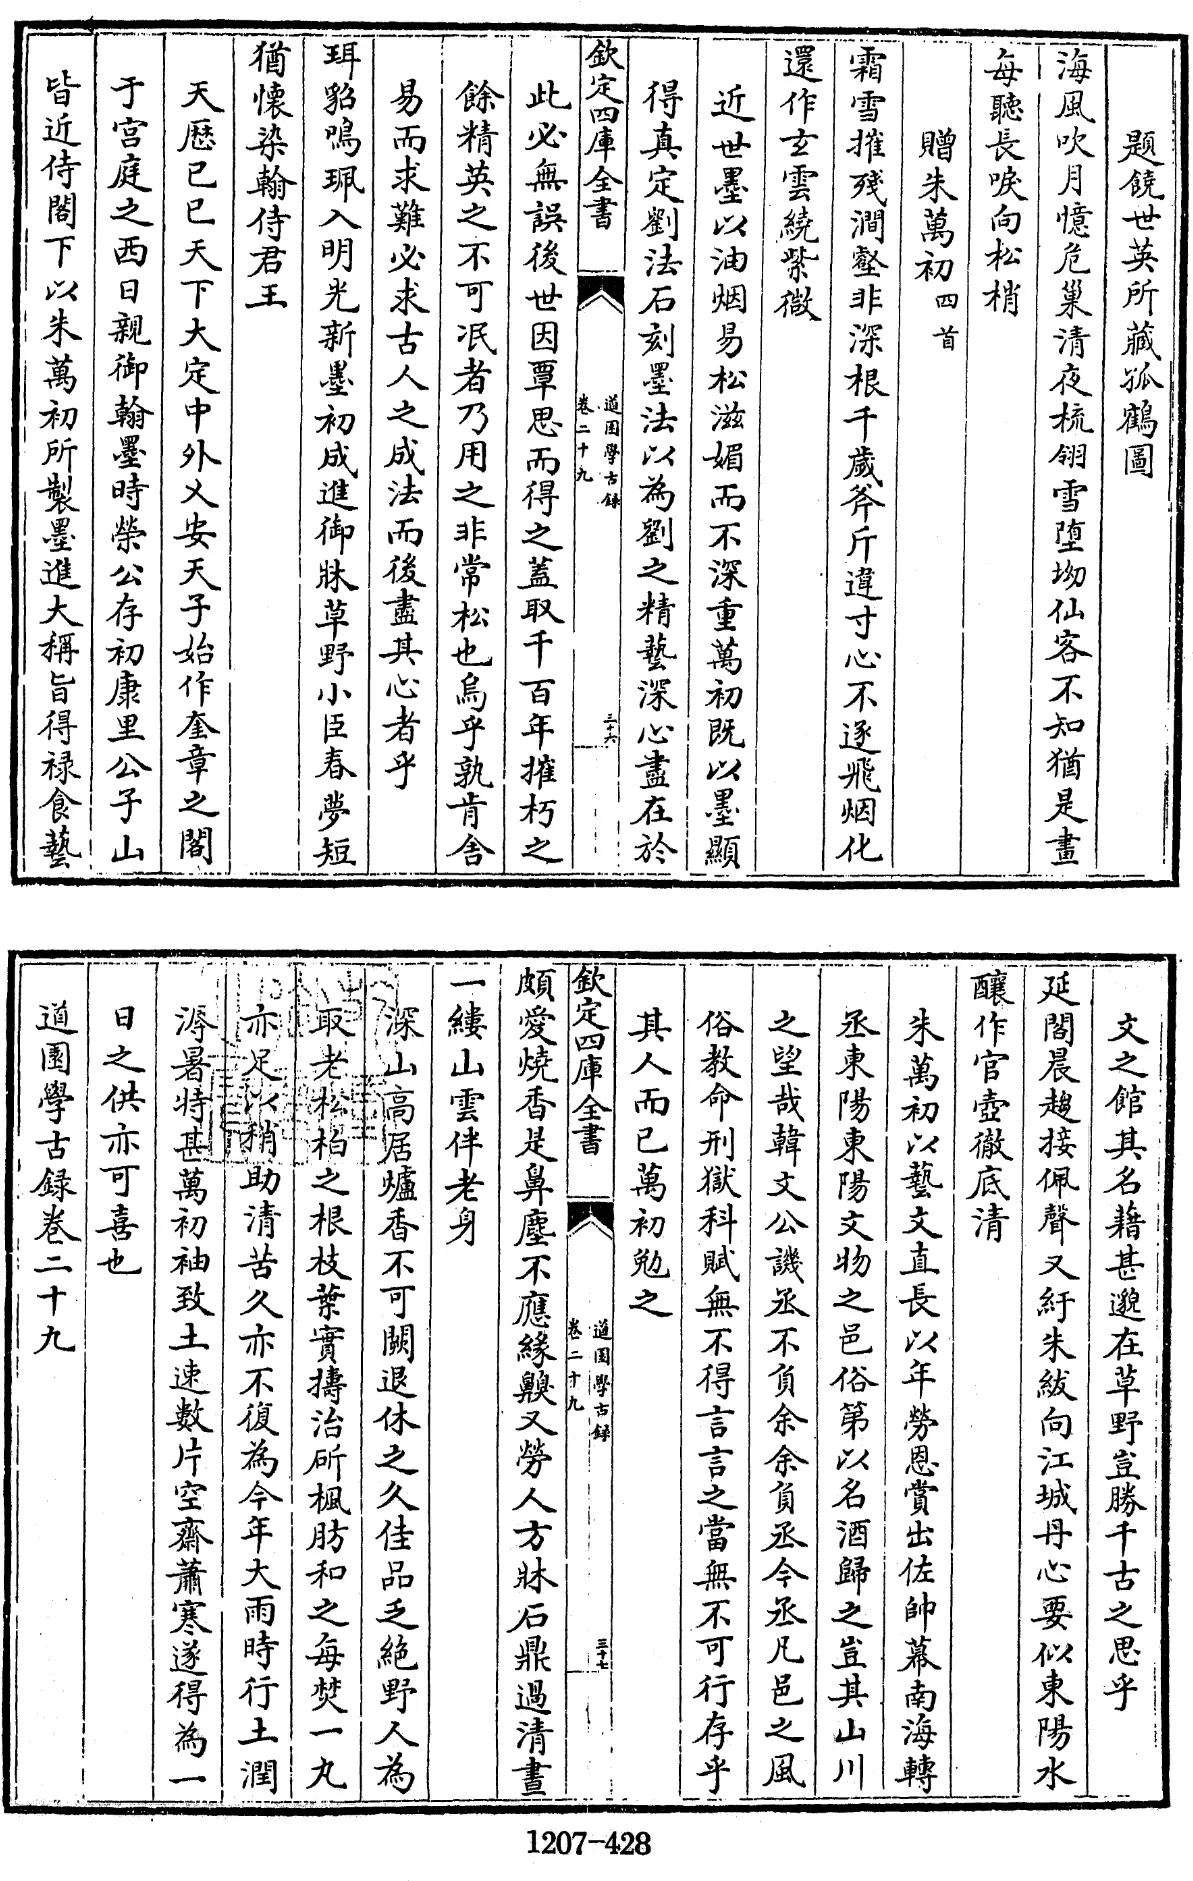 題饒世英所藏孤鶴圖
海風吹月憶危巢清夜梳翎雪墮坳仙客不知猶是畫
每聽長唳向松梢
贈朱萬初四首
霜雪摧殘澗壑非深根千歲斧斤違寸心不逐飛烟化
還作玄雲繞紫微
近世墨以油烟易松滋媚而不深重萬初既以墨顯
得真定劉法石刻墨法以為劉之精藝深心盡在於
欽定四庫全書
道園學古錄
卷二十九
三十六
此必無誤後世因覃思而得之蓋取千百年摧朽之
餘精英之不可泯者乃用之非常松也烏乎孰肯舍
易而求難必求古人之成法而後盡其心者乎
珥貂鳴珮入明光新墨初成進御牀草野小臣春夢短
猶懷染翰侍君王
天厯己巳天下大定中外乂安天子始作奎章之閣
于宫庭之西日親御翰墨時榮公存初康里公子山
皆近侍閣下以朱萬初所製墨進大稱旨得禄食藝
文之館其名藉甚邈在草野豈勝千古之思乎
延閣晨趨接佩聲又紆朱紱向江城丹心要似東陽水
釀作官壺徹底清
朱萬初以藝文直長以年勞恩賞出佐帥幕南海轉
丞東陽東陽文物之邑俗第以名酒歸之豈其山川
之望哉韓文公譏丞不負余余負丞今丞凡邑之風
俗教命刑獄科賦無不得言言之當無不可行存乎
其人而已萬初勉之
欽定四庫全書
道園學古錄
卷二十九
三十七
頗愛燒香是鼻塵不應緣鼻又勞人方牀石鼎過清晝
一縷山雲伴老身
深山高居爐香不可闕退休之久佳品乏絶野人為
取老松柏之根枝葉實擣治斫楓肪和之每焚一丸
亦足以稍助清苦久亦不復為今年大雨時行土潤
溽暑特甚萬初袖致土速數片空齋蕭寒遂得為一
日之供亦可喜也
道園學古録卷二十九
1207-428